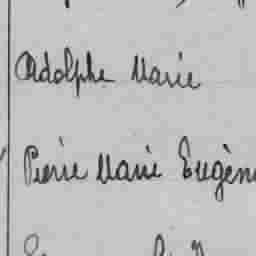 Adolphe Marie
Pierre Marie Eugèn